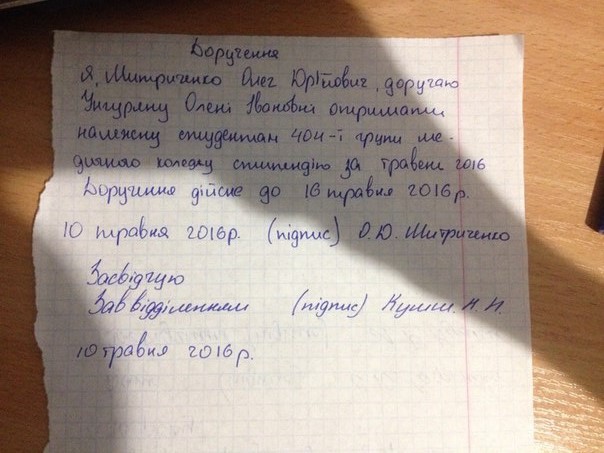 Доручення
Я, Митриченко Олег Юрійович, доручаю
Унгуряну Олені Івановні отримати
належну студентам 404-ї групи ме-
дичного коледжу стипендію за травень 2016
Доручення дійсне до 16 травня 2016р.
10 травня 2016р. (підпис) О.Ю. Митриченко
Засвідчую
Зав відділенням (підпис) Н. И.
10 травня 2016р.